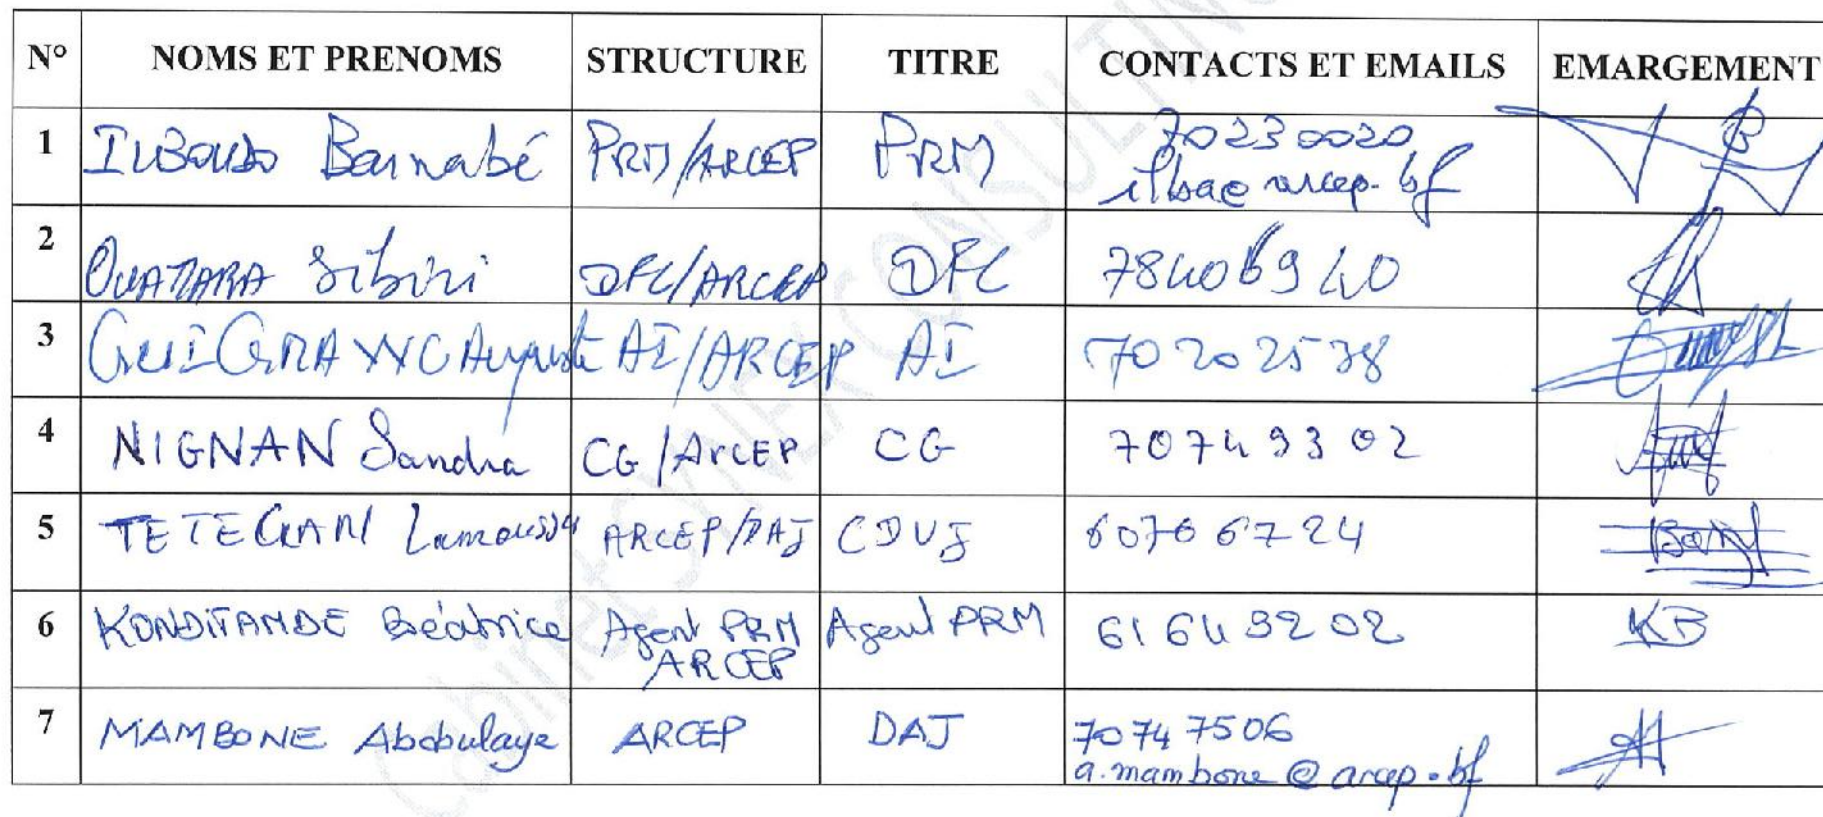 N° NOMS ET PRENOMS STRUCTURE TITRE CONTACTS ET EMAILS EMARGEMENT
1 ILBOUDO Barnabé PRM/ARCEP PRM 70230020
ilba@arcep.bf
2 OUATTARA Sibiri DFC/ARCEP DFC 78406940
3 GUIGRA Auguste AI/ARCEP AI 70202538
4 NIGNAN Sandra CG/ARCEP CG 70749302
5 Lamoussa ARCEP/DAJ 60706724
6 KONDITAMDE Béatrice Agent PRM Agent PRM 61649202 KB
ARCEP
7 MAMBONE Abdoulaye ARCEP DAJ 70747506
a.mambone@arcep.bf
Cabinet CONSULTING